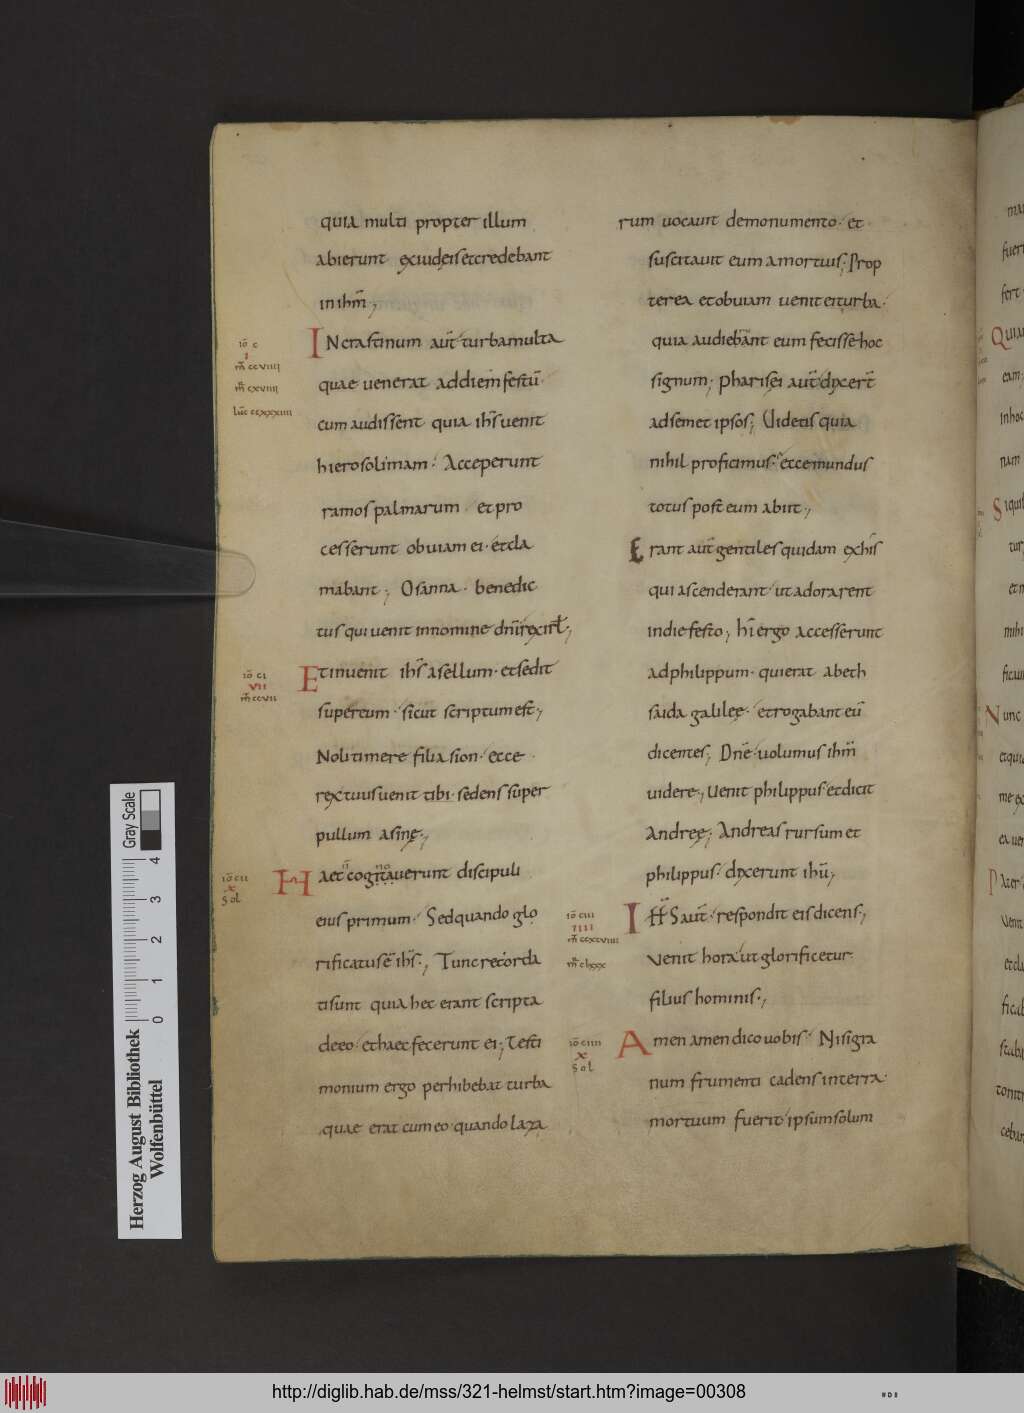 quia multi propter illum
abierunt ex iudęis et credebant
in ihm̄;
io c
I
m̄ ccviiii
m̄ cxviiii
luc̄ ccxxxiiii
IN crastinum aut̄ turba multa
quae uenerat ad diem festū·
cum audissent quia ihs̄ uenit
hierosolimam· Acceperunt
ramos palmarum· et pro
cesserunt obuiam ei· et cla
mabant; Osanna· benedic
tus qui uenit in nomine dnī rex isrl̄;
io ci
VII
m̄ ccvii
Et inuenit ihs̄ asellum· et sedit
super eum· sicut scriptum est̄;
Noli timere filia sion· ecce
rex tuus uenit tibi· sedens super
pullum asinę;
io cii
x
sol
Haec cogitauerunt discipuli
eius primum· Sed quando glo
rificatus ē ihs̄; Tunc recorda
ti sunt quia hec erant scripta
de eo· et haec fecerunt ei; Testi
monium ergo perhibebat turba
quae erat cum eo· quando laza
rum uocauit de monumento· et
suscitauit eum a mortuis; Prop
terea et obuiam uenit ei turba·
quia audiebant eum fecisse hoc
signum; Pharisei aut̄ dixer̄t
ad semet ipsos; Uidetis quia
nihil proficimus· ecce mundus
totus post eum abiit;
Erant aut̄ gentiles quidam ex his
qui ascenderant ut adorarent
in die festo; hī ergo accesserunt
ad philippum· qui erat a beth
saida galileę· et rogabant eū
dicentes; Dnē uolumus ihm̄
uidere; Uenit philippus· et dicit
Andreę; Andreas rursum et
philippus· dixerunt ihū;
io ciii
IIII
m̄ ccxcviiii
m̄ clxxx
IHS aut̄ respondit eis dicens;
Venit hora ut glorificetur
filius hominis;
io ciiii
x
sol
Amen amen dico uobis· Nisi gra
num frumenti cadens in terra·
mortuum fuerit· ipsum solum
Herzog August Bibliothek
Wolfenbüttel
0 1 2 3 4
Gray Scale
http://diglib.hab.de/mss/321-helmst/start.htm?image=00308